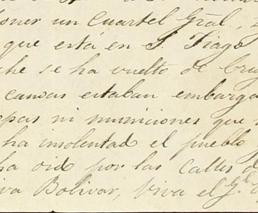 oner un Cuartel Gral,
que está en S. Tiago
che se ha vuelto de
causas estaban embarga
opas ni municiones que
ha insolentad el pueblo
ha oid por las calles d
va Bolivar, viva el G.l